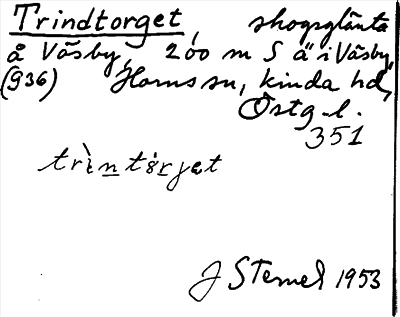 Trindtorget, skogsglänta
å Väsby, 200 m S ä i Väsby,
(936) Horns sn, kinda hd,
Östg. l.
351
trìntȯrjət
J Stemel 1953